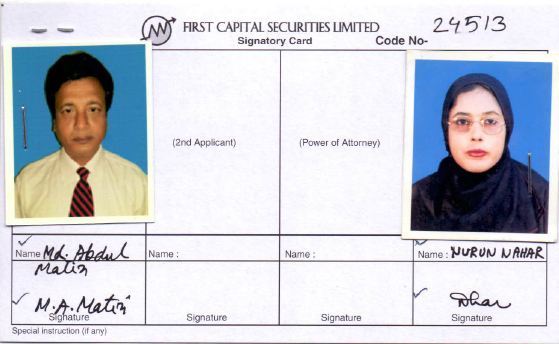 FIRST CAPITAL SECURITIES LIMITED
Signatory Card Code No- 24513
(2nd Applicant) (Power of Attorney)
Name Md. Abdul Name : Name : Name : NURUN NAHAR
Matin
M.A. Matin Nhar
Signature Signature Signature Signature
Special instruction (if any)